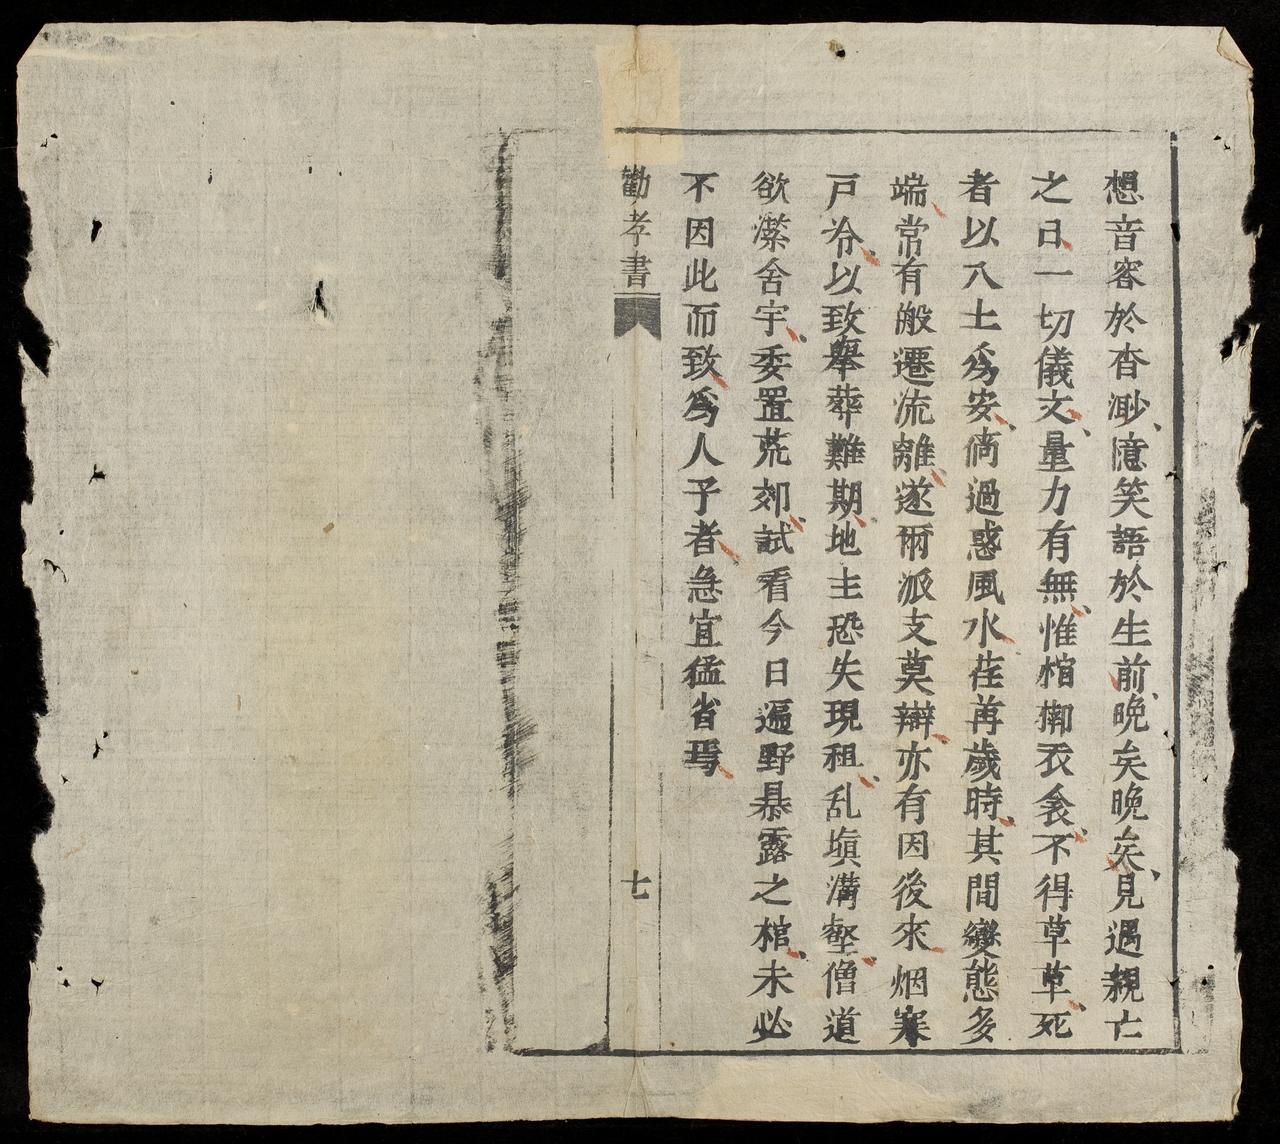 想音容於杳渺、憶笑語於生前、晚矣晚矣、見遇親亡
之日一切儀文、量力有無、惟棺槨衣衾、不得草草、死
者以入土為安、倘過惑風水荏苒歲時、其間變態多
端常有般遷流離遂爾派支莫辯亦有因後來烟寒
戸冷、以致舉葬難期地主恐失現租、乱塡溝壑、僧道
欲潔舍宇、委置荒郊、試看今日遍野暴露之棺、未必
不因此而致為人子者急宜猛省焉
勸孝書
七